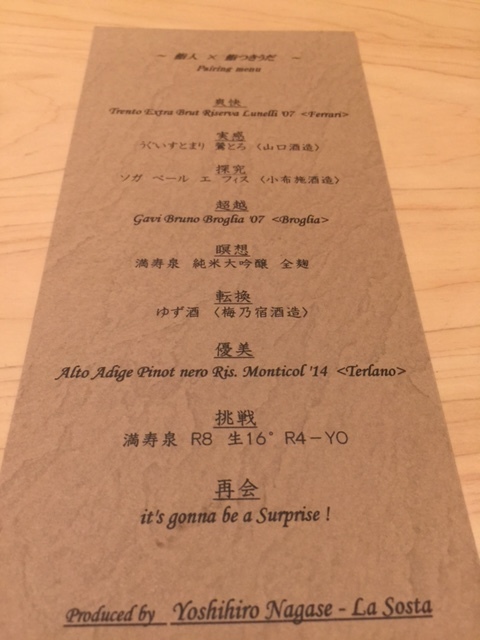 ～ 鮨人 × 鮨つきうだ ～
Pairing menu
爽快
Trento Extra Brut Riserva Lunelli '07 <Ferrari>
実感
うぐいすとまり 鶯とろ 〈山口酒造〉
探究
ソガ ペール エ フィス 〈小布施酒造〉
超越
Gavi Bruno Broglia '07 <Broglia>
瞑想
満寿泉 純米大吟醸 全麹
転換
ゆず酒 〈梅乃宿酒造〉
優美
Alto Adige Pinot nero Ris. Monticol '14 <Terlano>
挑戦
満寿泉 R8 生16° R4－YO
再会
it's gonna be a Surprise !
Produced by Yoshihiro Nagase - La Sosta